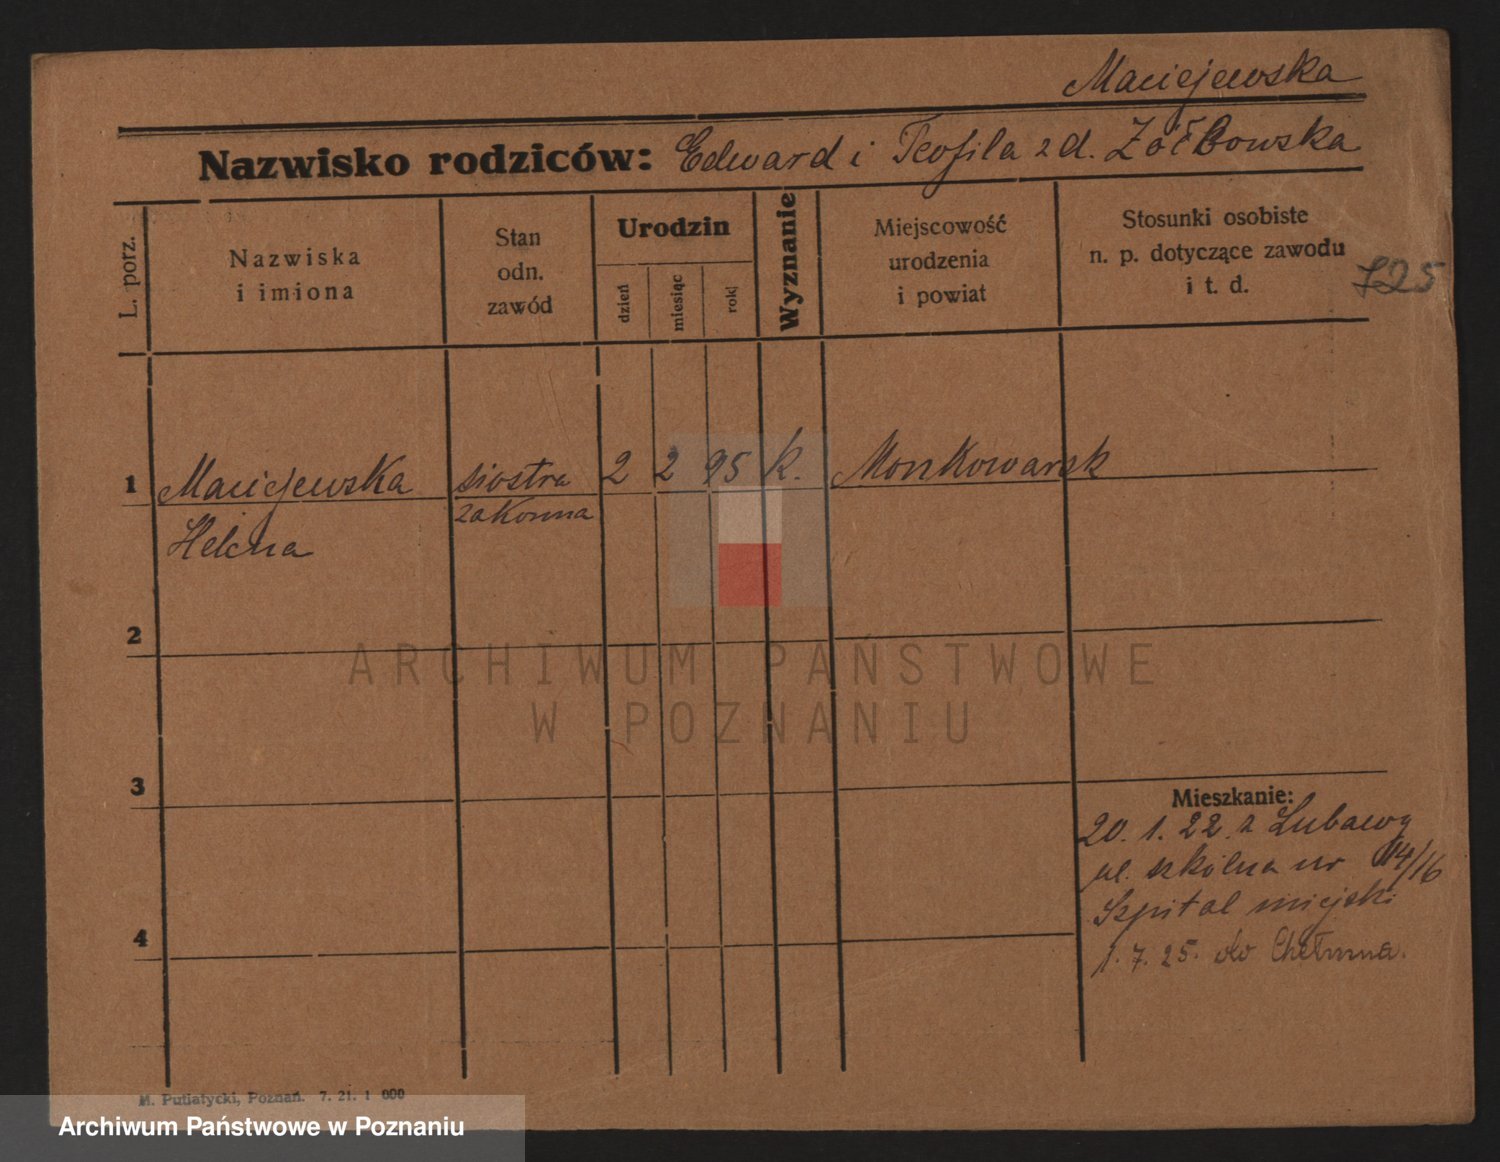 Maciejewska
Nazwisko rodziców: Edward i Teofila z d. Żółkowska
L. porz.
Nazwiska
i imiona
Stan
odn.
zawód
Urodzin
dzień
miesiąc
rok
Wyznanie
Miejscowość
urodzenia
i powiat
Stosunki osobiste
n. p. dotyczące zawodu
i t. d.
725
1 Maciejewska siostra 2 2 95 k. Monkowarsk
zakonna
Helena
2
3
Mieszkanie:
20. 1. 22 z Lubawy
ul. szkolna nr 14/16
Szpital miejski
4
1. 7. 25. do Chełmna.
M. Putiatycki, Poznań. 7. 21. 1 000
ARCHIWUM PAŃSTWOWE
W POZNANIU
Archiwum Państwowe w Poznaniu